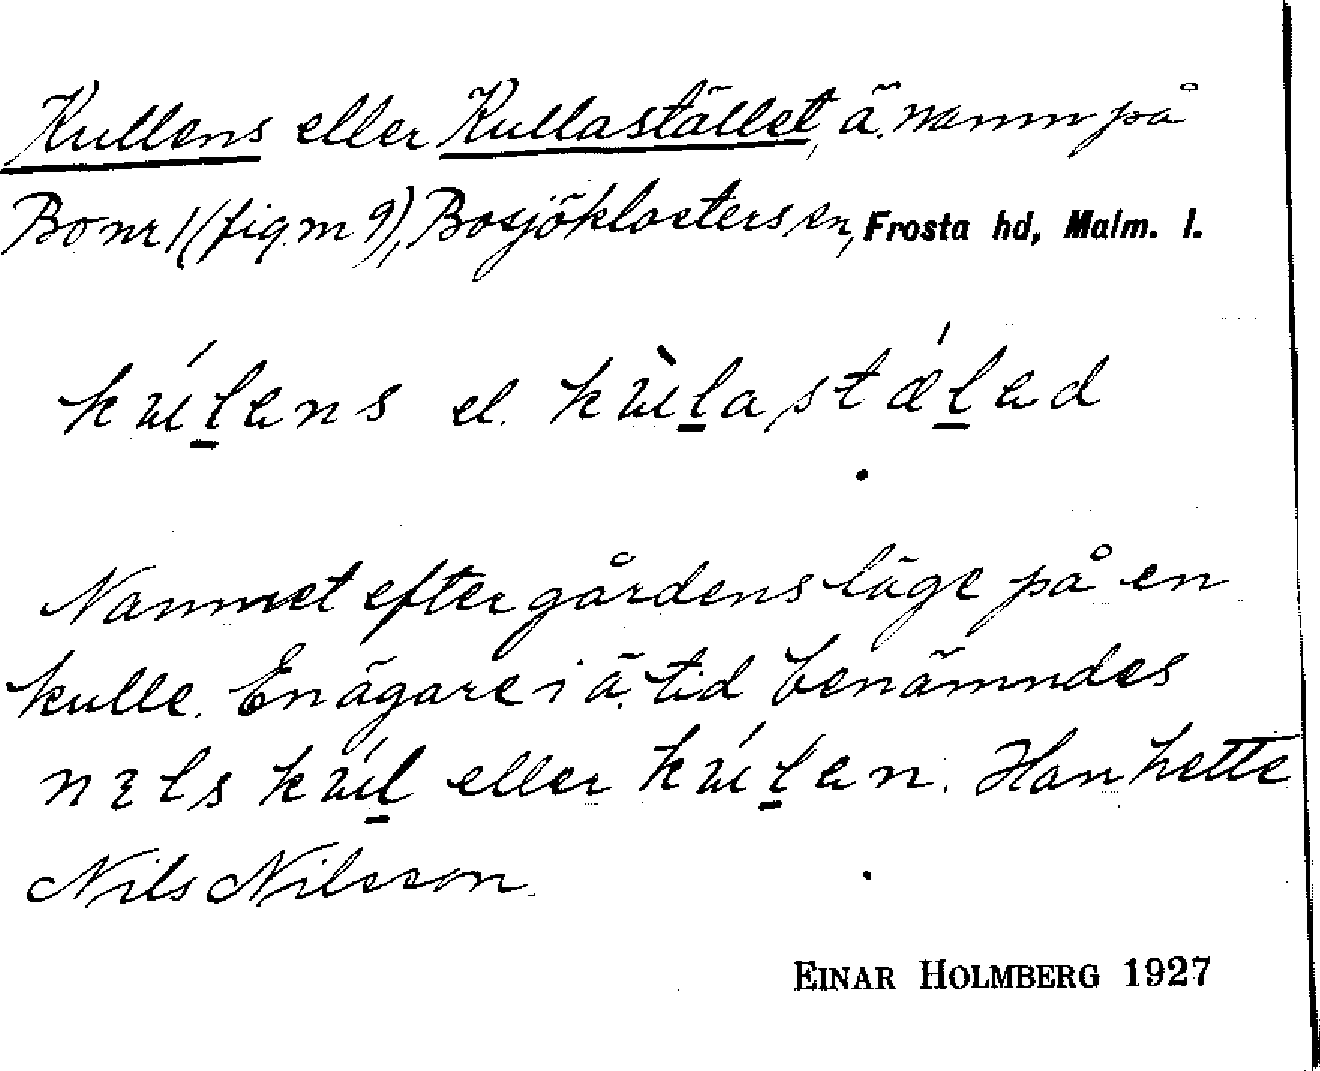 Kullens eller Kullastället, ä. namn på
Bo nr 1 (fig. m 9), Bosjöklosters sn, Frosta hd, Malm. l.
kúl̲ens el. kùl̲astǽl̲ed
Namnet efter gårdens läge på en
kulle. En ägare i ä. tid benämndes
nɪls kúl̲ eller kúl̲en. Han hette
Nils Nilsson.
EINAR HOLMBERG 1927